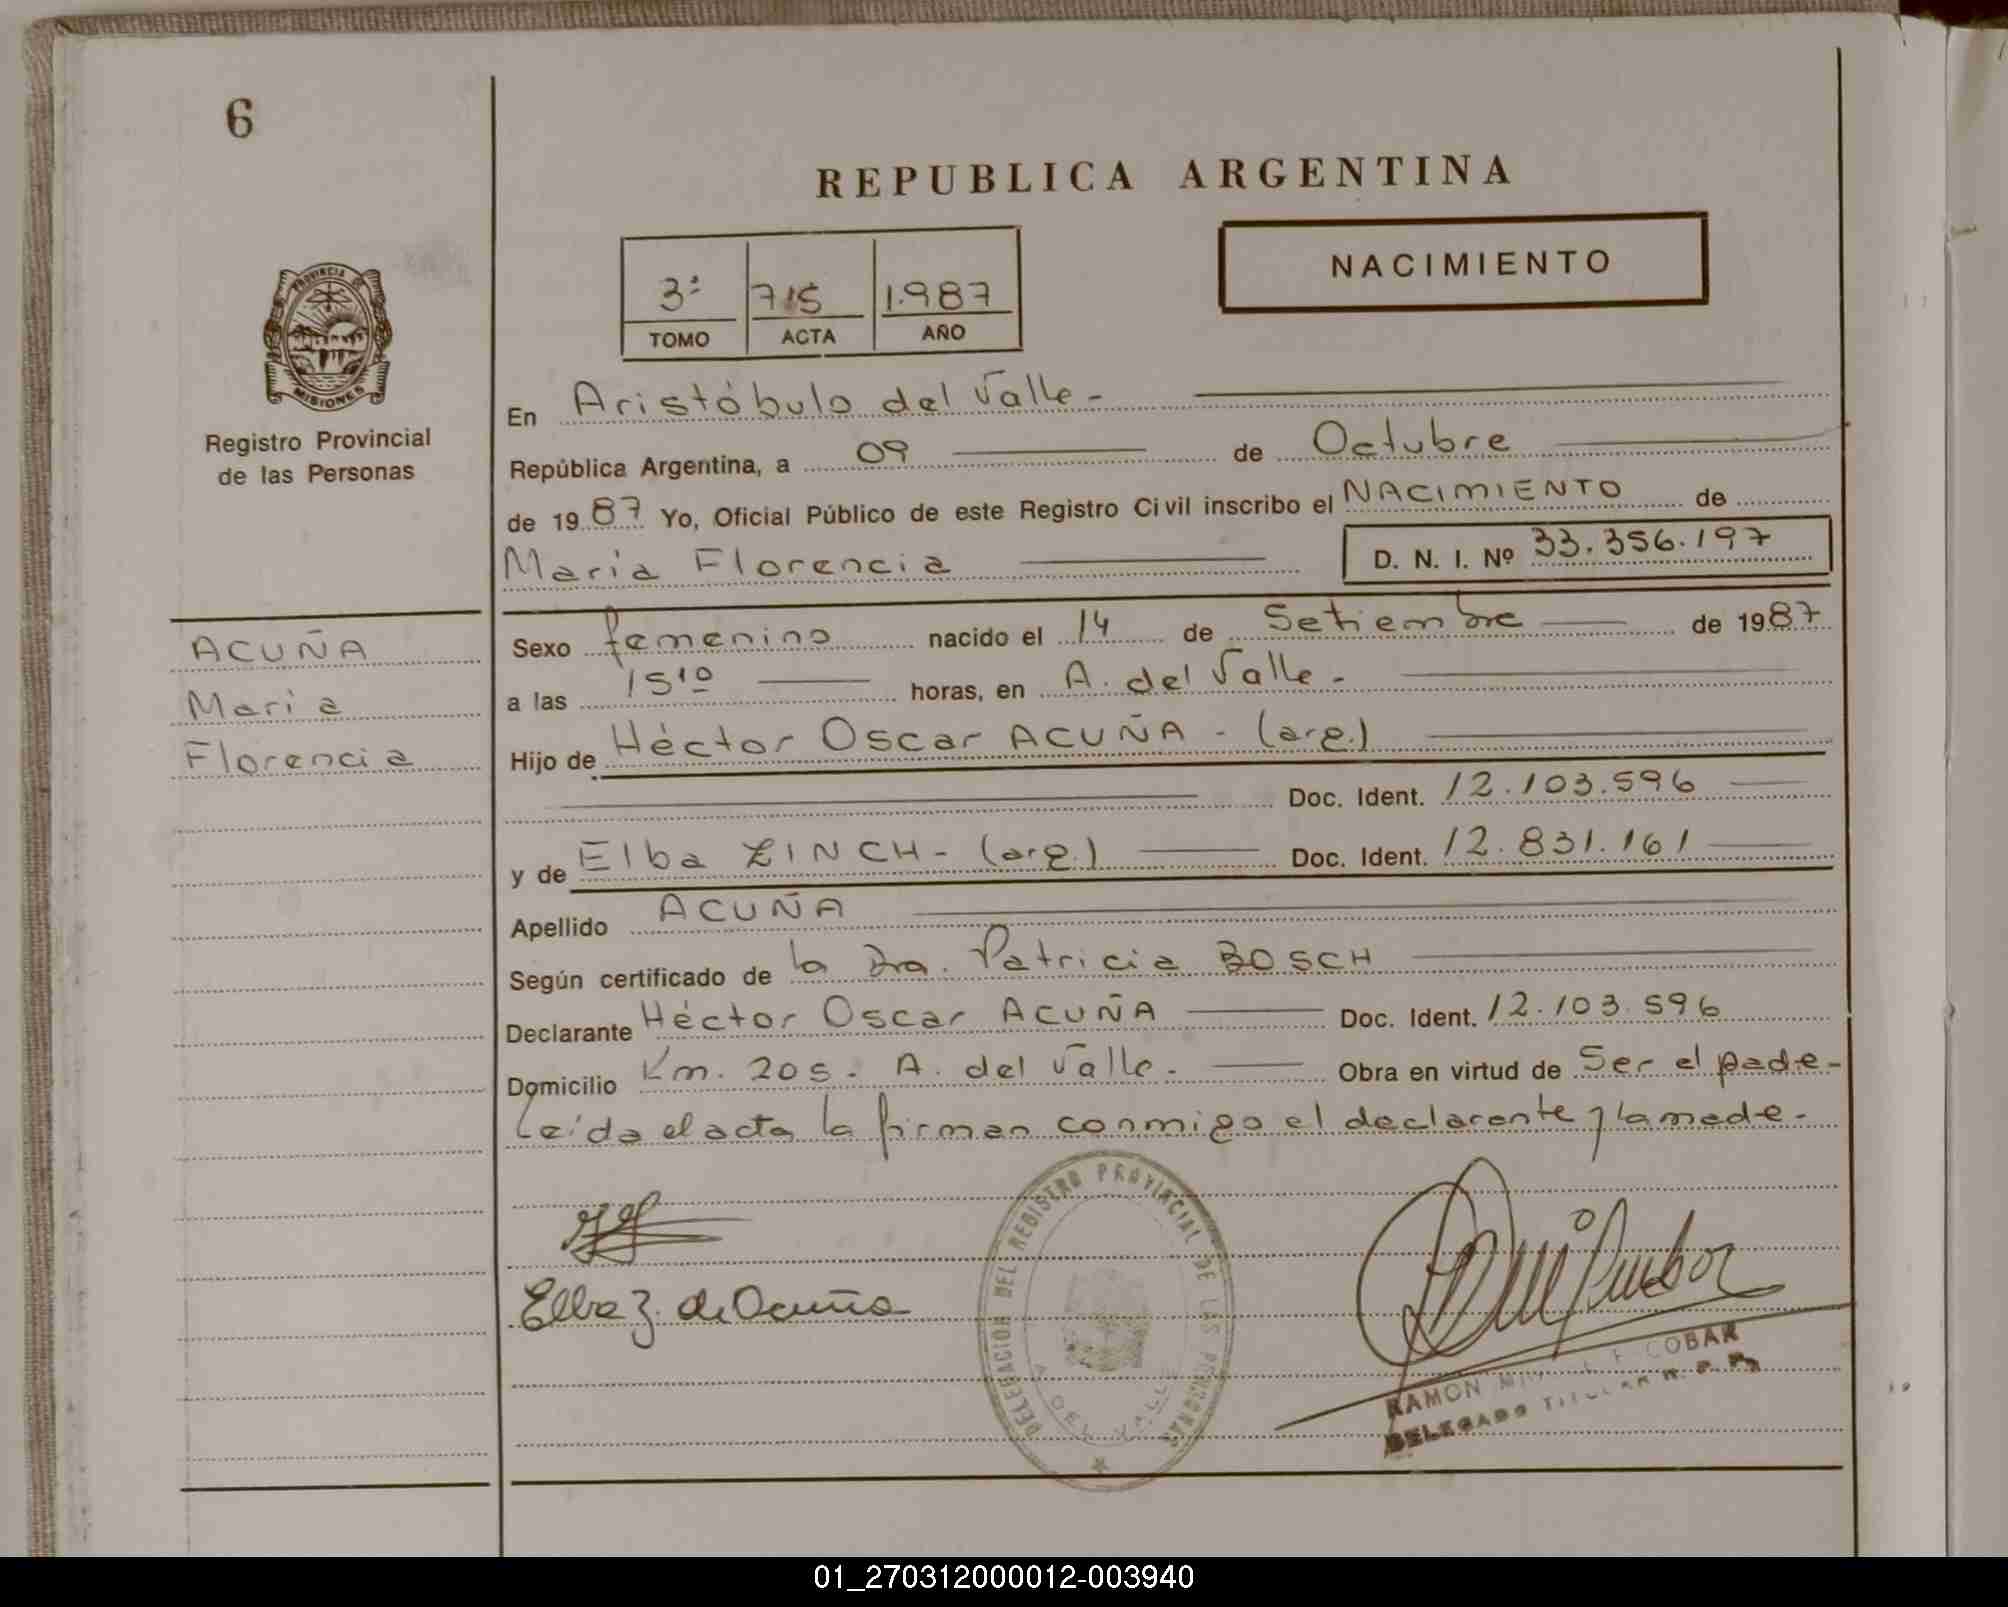 6
REPUBLICA ARGENTINA
NACIMIENTO
3ª 715 1.987
TOMO ACTA AÑO
PROVINCIA DE
MISIONES
Registro Provincial
de las Personas
En Aristóbulo del Valle-
República Argentina, a 09 de Octubre
de 1987 Yo, Oficial Público de este Registro Civil inscribo el NACIMIENTO de
María Florencia D. N. I. Nº 33.356.197
ACUÑA
María
Florencia
Sexo femenino nacido el 14 de Setiembre de 1987
a las 15¹⁰ horas, en A. del Valle-
Hijo de Héctor Oscar ACUÑA - (arg.)
Doc. Ident. 12.103.596
y de Elba ZINCH - (arg.) Doc. Ident. 12.831.161
Apellido ACUÑA
Según certificado de la Dra. Patricia BOSCH
Declarante Héctor Oscar ACUÑA Doc. Ident. 12.103.596
Domicilio Km. 205. A. del Valle- Obra en virtud de Ser el padre-
Leída el acta la firman conmigo el declarante y la madre-
Elba Z. de Acuña
DELEGACION DEL REGISTRO PROVINCIAL DE LAS PERSONAS
A. DEL VALLE
RAMON
DELEGADO TITULAR R. P. P.
01_270312000012-003940